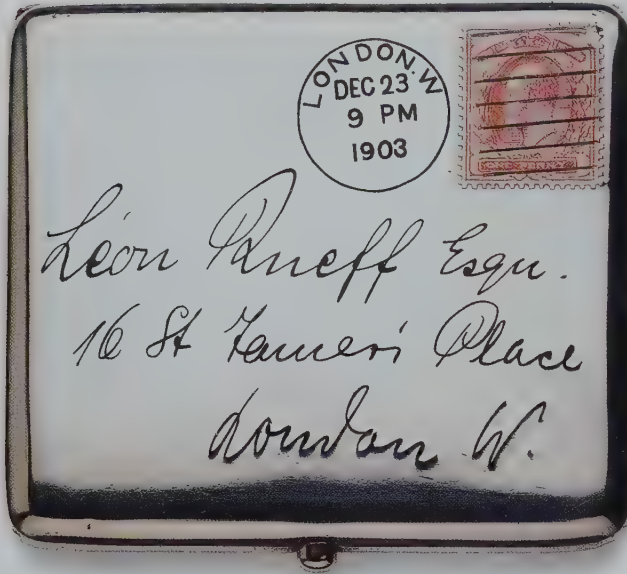 LONDON.W
DEC 23
9 PM
1903
Léon Rueff Esqu.
16 St James's Place
London W.